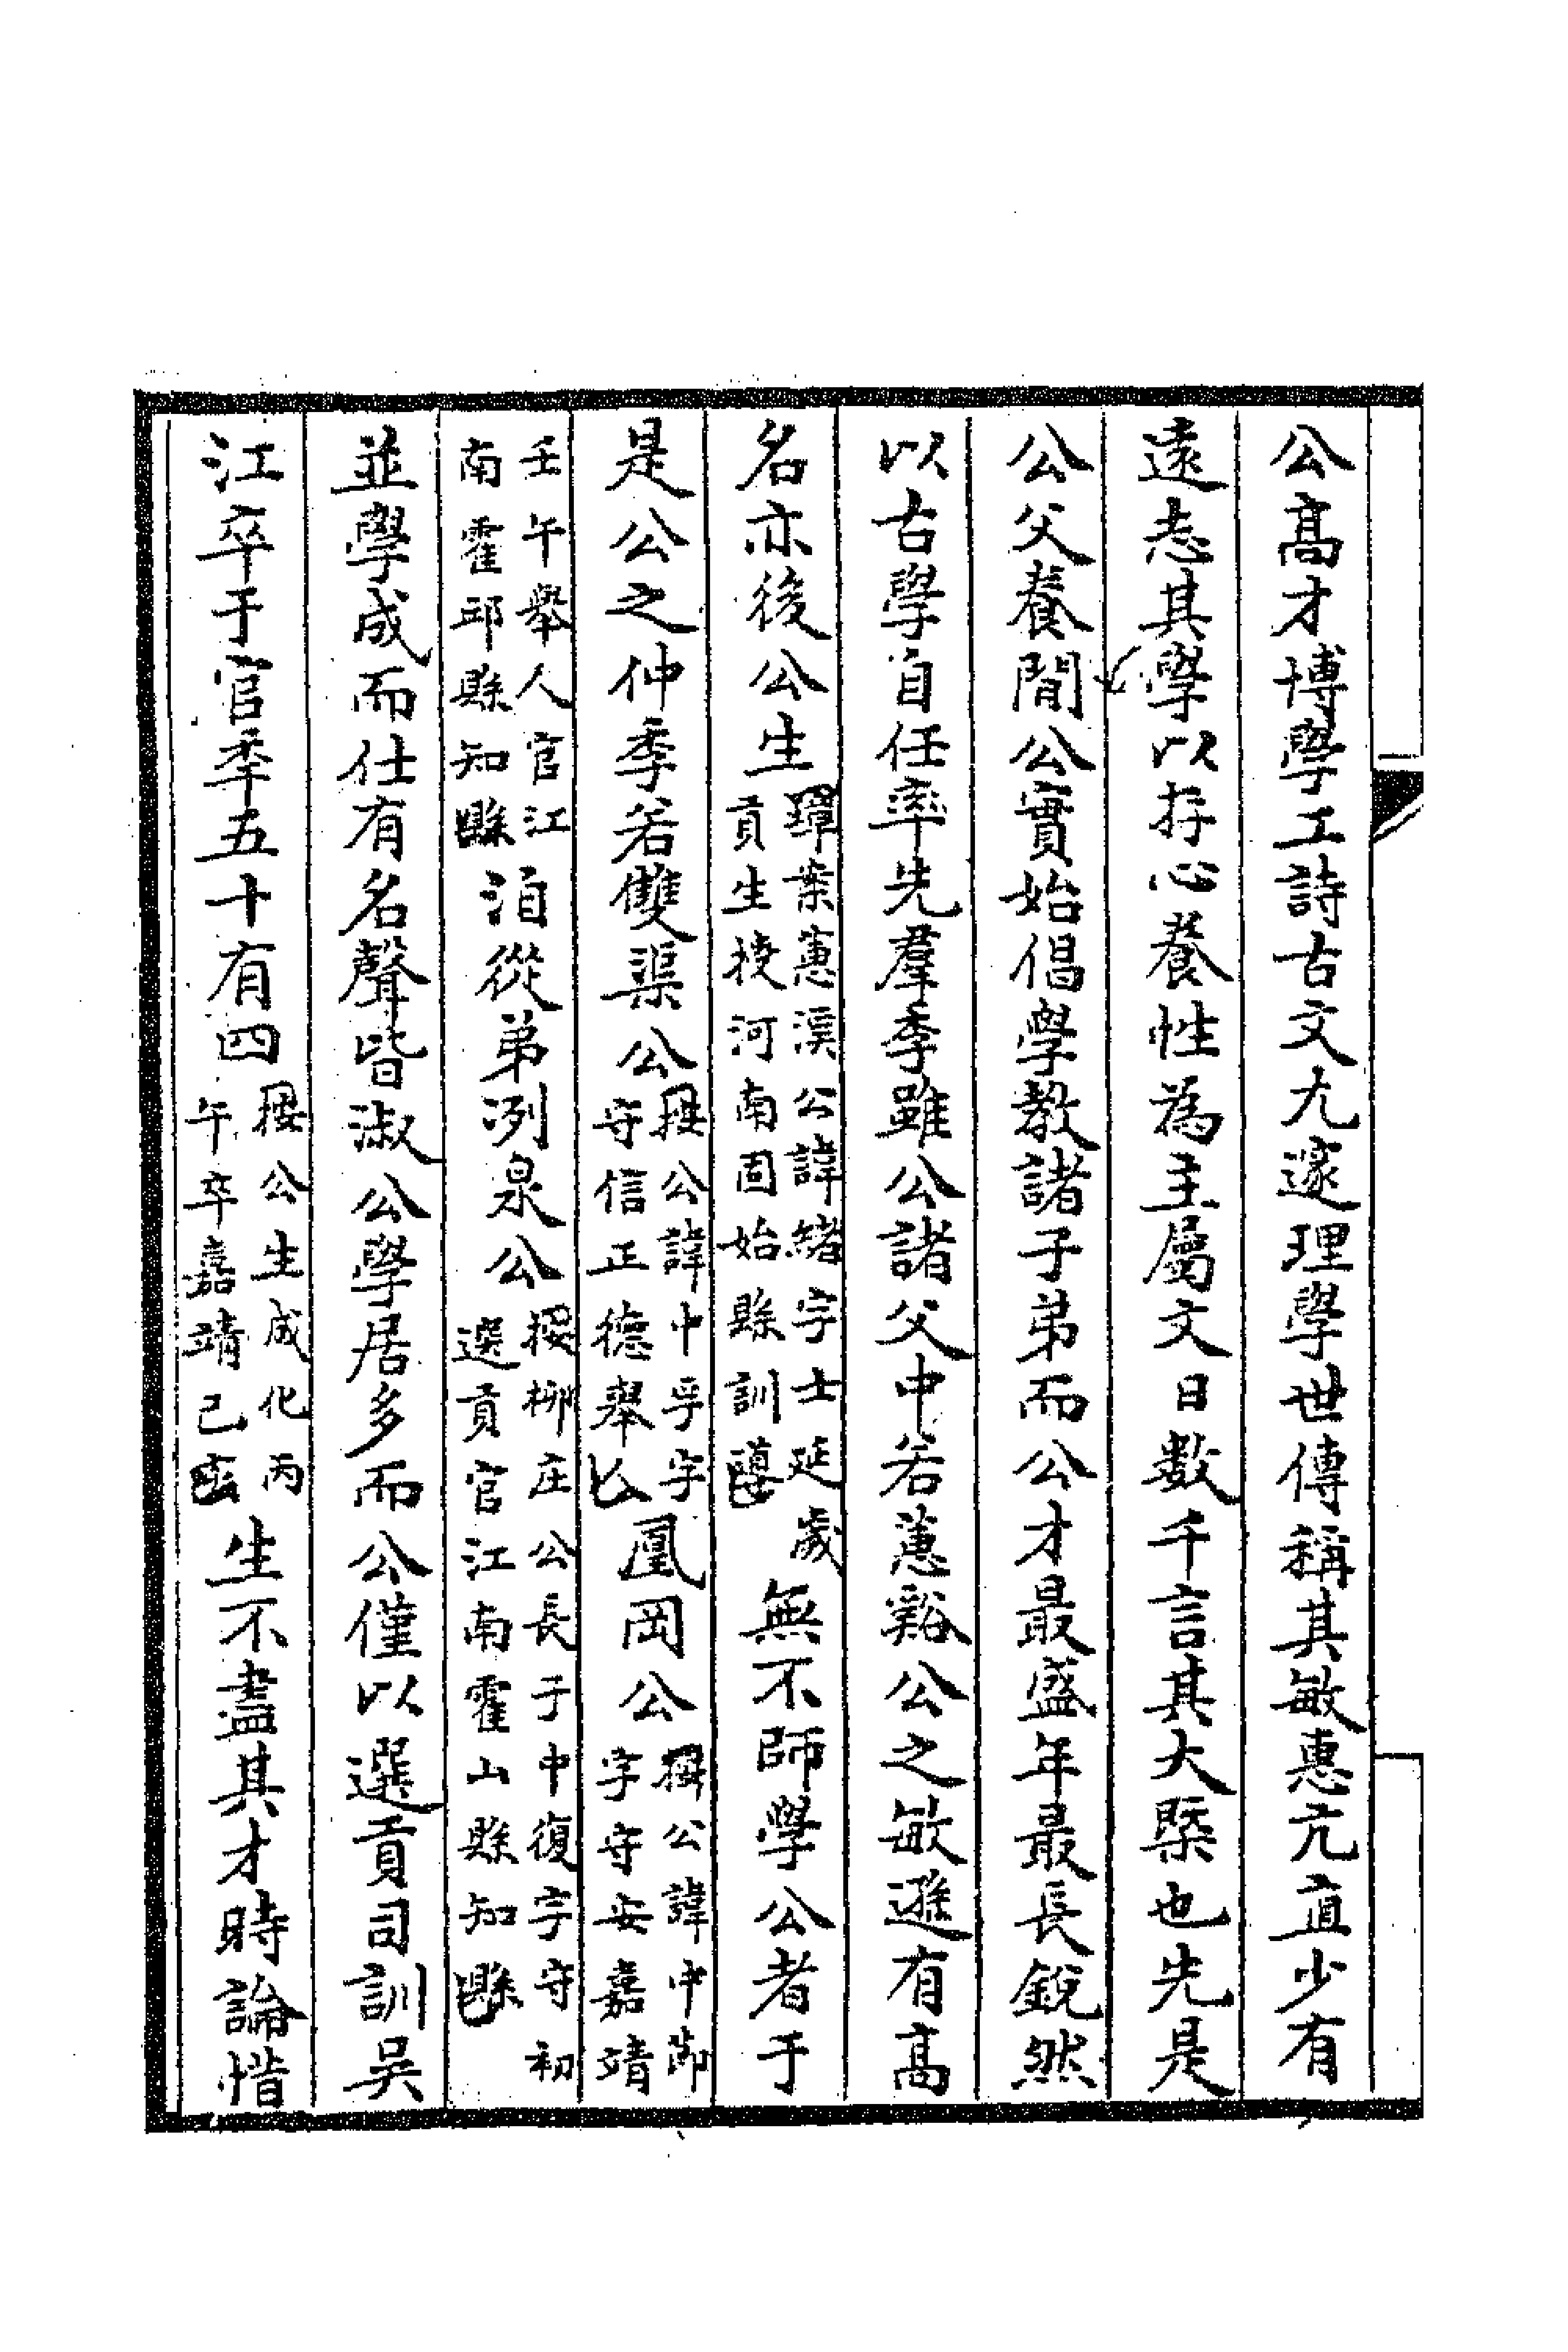 公高才博學工詩古文尤邃理學世傳稱其敏惠亢直少有
遠志其學以存心養性為主屬文日數千言其大槩也先是
公父養閒公實始倡學教諸子弟而公才最盛年最長銳然
以古學自任率先羣季雖公諸父中若蕙谿公之敏遜有高
名亦後公生
璋案蕙溪公諱緒字士延歲
貢生授河南固始縣訓導
無不師學公者于
是公之仲季若雙渠公
按公諱中孚字
守信正德舉人
凰岡公
按公諱中節
字守安嘉靖
壬午舉人官江
南霍邱縣知縣
洎從弟洌泉公
按柳庄公長子中復字守初
選貢官江南霍山縣知縣
並學成而仕有名聲皆淑公學居多而公僅以選貢司訓吳
江卒于官季五十有四
按公生成化丙
午卒嘉靖己亥
生不盡其才時論惜